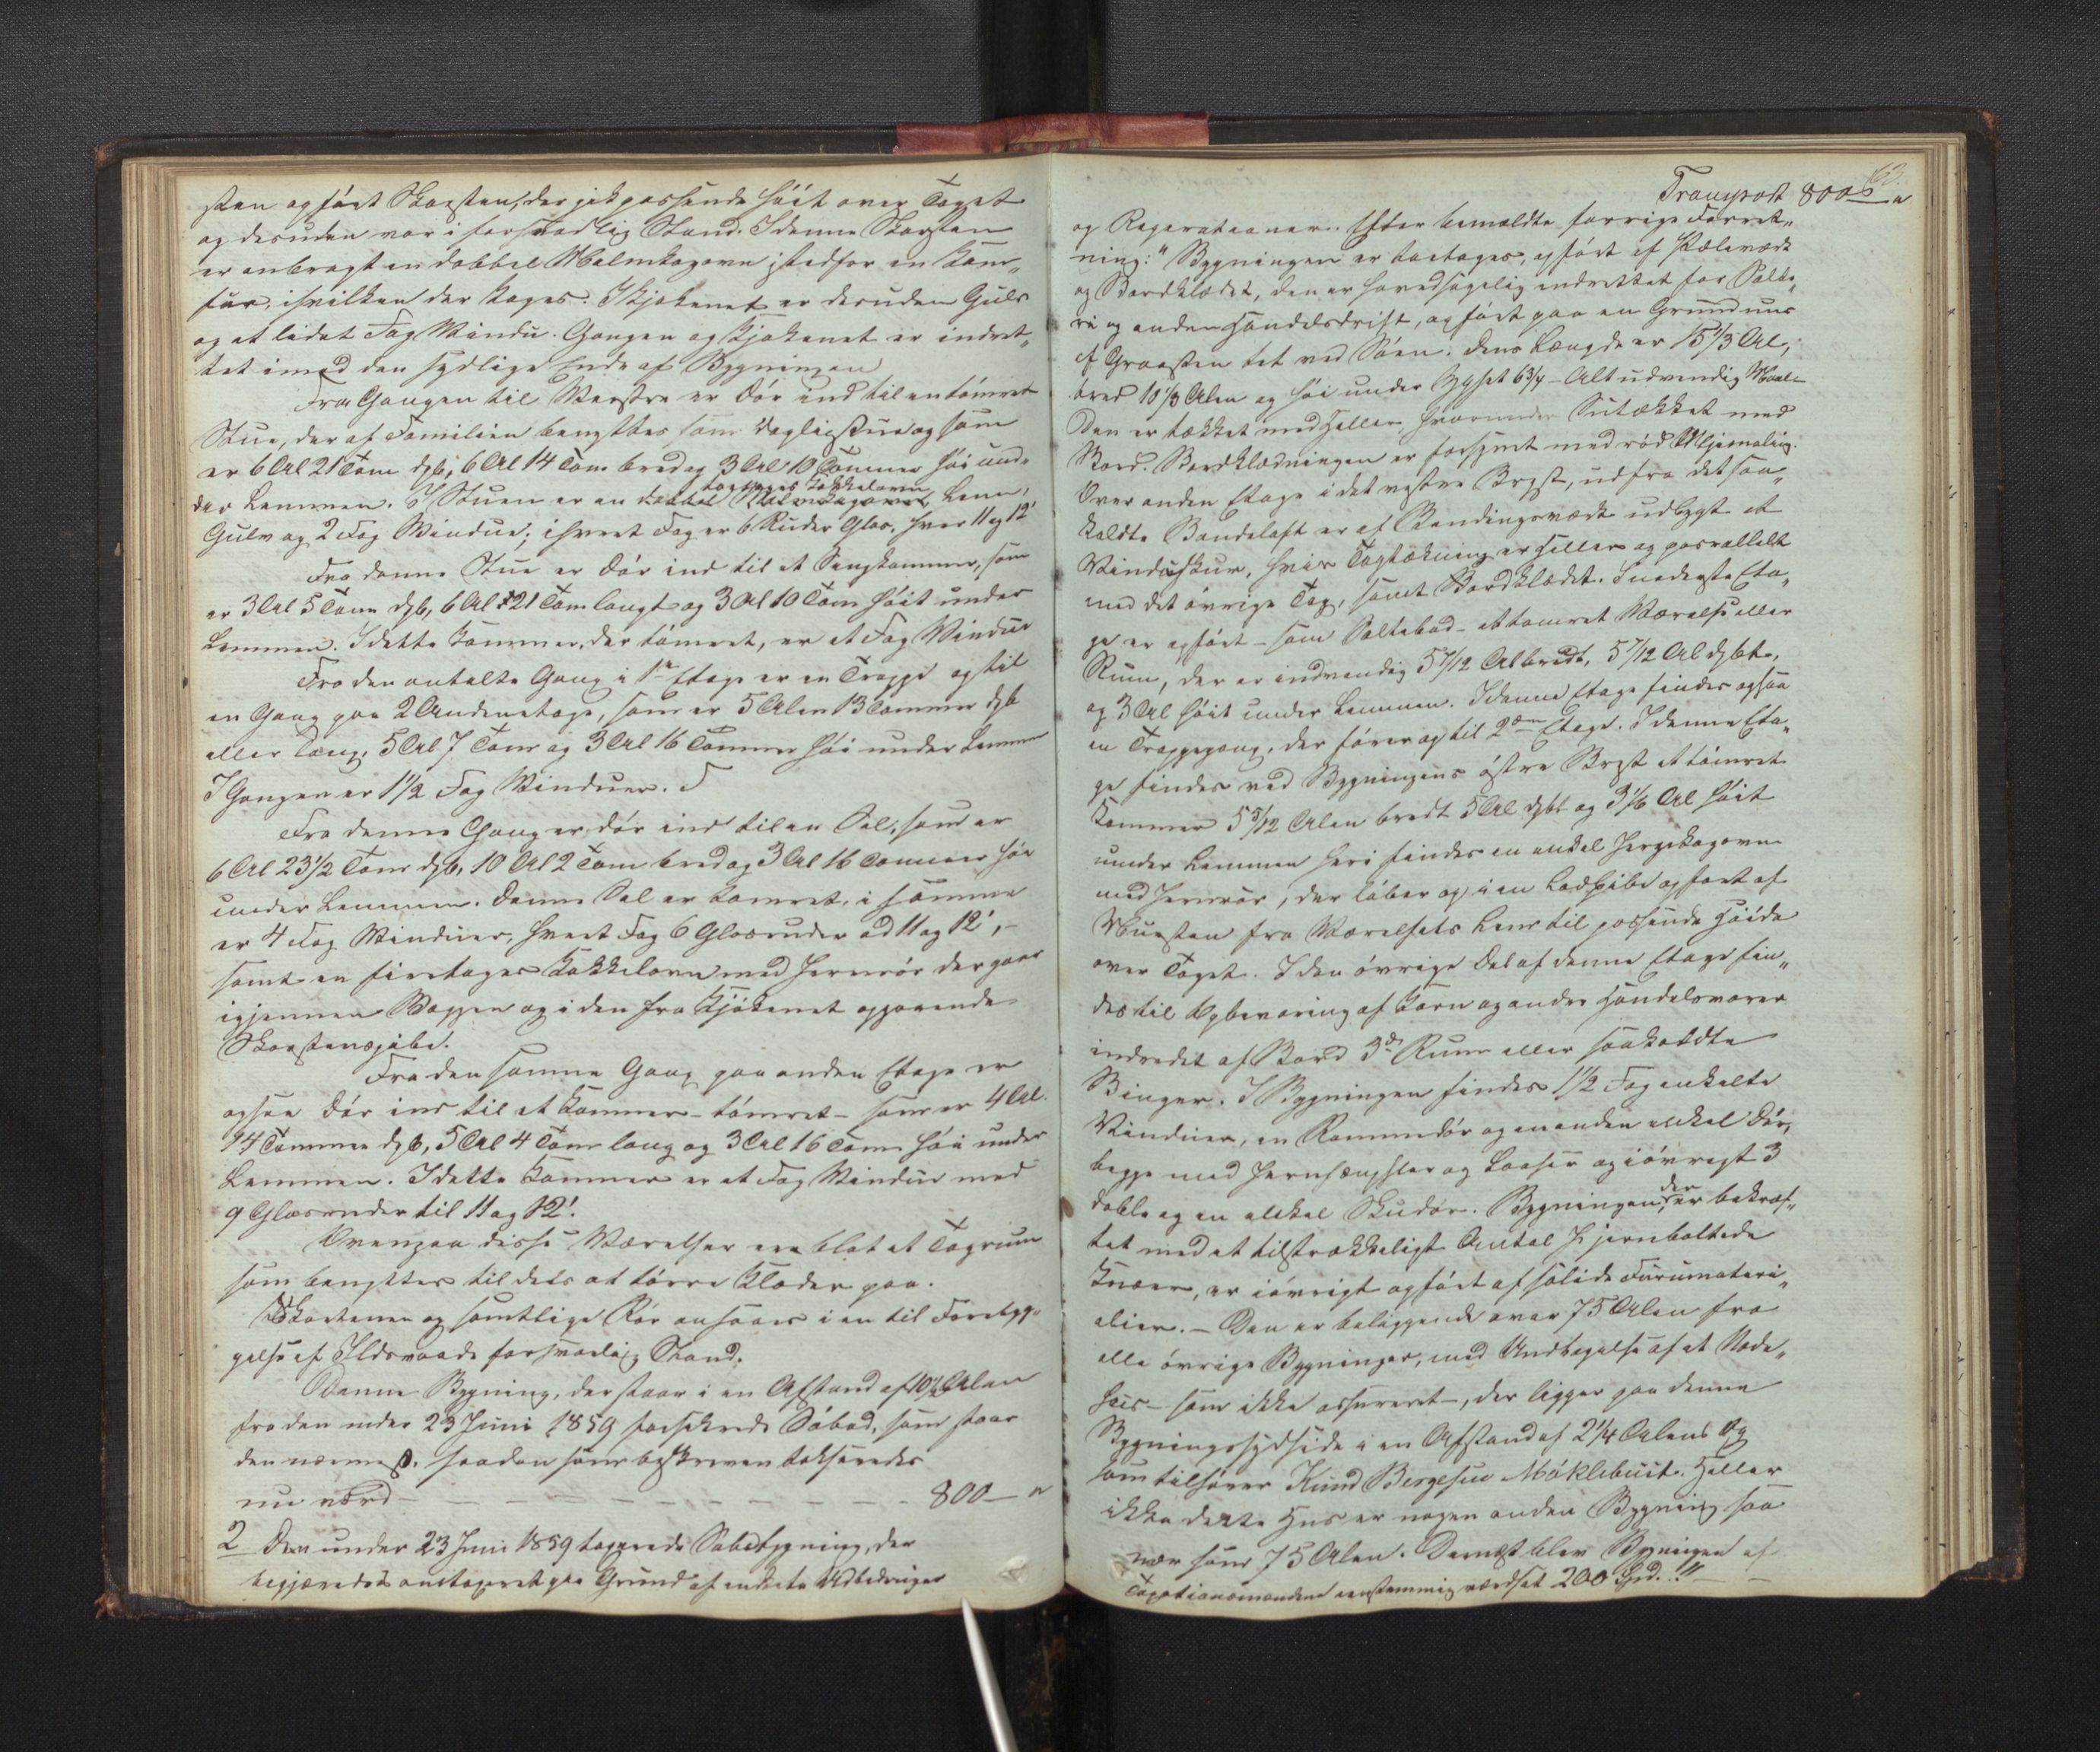 sten opført Skorsten, der gik passende høit over Taget
og desuden var i forsvarlig Stand. I denne Skorsten
er anbragt en dobbel Malmkogovn istedfor en Kom„
fur, i hvilken der koges. I Kjøkenet er desuden Gulv
og et lidet Fag Vindu. Gangen og Kjøkenet er indret„
tet imod den sydlige Ende af Bygningen
Fra Gangen til Venstre er Dør ind til en tømret
Stue, der af Familien benyttes som Dagligstue og som
er 6 Al 21 Tom dyb, 6 Al 14 Tom bred og 3 Al 10 Tommer høi un„
der Lemmen. I Stuen er en dobbel Malmkogovn toetages Kakkelovn Lem,
Gulv og 2 Fag Vinduer; i hvert Fag er 6 Ruder Glas, hver 11 og 12'
Fra denne Stue er Dør ind til et Sengkammer, som
er 3 Al 5 Tom dyb, 6 Al 21 Tom langt og 3 Al 10 Tom høit under
Lemmen. I dette Kammer, der tømret, er et Fag Vindue
Fra den omtalte Gang i 1ste Etage er en Trappe op til
en Gang paa 2 Anden etage, som er 5 Alen 13 Tommer dyb
eller lang, 5 Al 7 Tom og 3 Al 16 Tommer høi under Lemmen
I Gangen er 1½ Fag Vinduer.
Fra denne Gang er dør ind til en Sal, som er
6 Al 23½ Tom dyb, 10 Al 2 Tom bred og 3 Al 16 Tommer høi
under Lemmen. Denne Sal er tømret, i samme
er 4 Fag Vinduer, hvert Fag 6 Glasruder ad 11 og 12',
samt en firetages Kakkelovn med Jernrør der gaar
igjennem Væggen og i den fra Kjøkenet opgaaende
Skorstenspibe.
Fra den samme Gang paa anden Etage er
ogsaa Dør ind til et Kammer – tømret – som er 4 Al.
14 Tommer dyb, 5 Al 4 Tom lang og 3 Al 16 Tom høi under
Lemmen. I dette Kammer er et Fag Vindue med
9 Glasruder til 11 og 12'.
Ovenpaa disse Værelser er blot et Tagrum
som benyttes til dels at tørre Klæder paa.
Skorstenen og samtlige Rør ansaaes i en til Forebyg„
gelse af Ildsvaade forsvarlig Stand.
Denne Bygning, der staar i en Afstand af 10½ Alen
fra den under 23 Juni 1859 forsikrede Søbod, som staar
den nærmest, saadan som beskreven taksteredes
nu værd – – – – – – – – – 800 – "
2 Den under 23 Juni 1859 taxerede Søbodbygning, der
begjæredes omtaxeret paa Grund af endeele Udbedringer
63.
Transport 800 – "
og Reparationer. Efter bemeldte forrige Forret„
ning: "Bygningen er toetages, opført af Stoleværk
og Bordklædt, den er hovedsagelig indrettet for Salte„
ri og anden Handelsdrift, opført paa en Grundmur
af Graasten tet ved Søen. Dens Længde er 15 1/3 Al,
bred 10 1/3 Alen og høi under Gyset 6 3/4 – Alt udvendig Maal.
Den er tækket med Heller, hvorunder Sutækket med
Bord. Bordklædningen er forsynet med rød Oljemaling.
Over anden Etage i det vestre Bryst, ud fra det saa„
kaldte Bandeloft er af Bindingsværk udbygt et
Vindeskur, hvis Tagtækning er Heller og paralellt
med det øvrige Tag, samt Bordklædt. I nederste Eta„
ge er opført – som Saltebod – et tømret Værelse eller
Rum, der er indvendig 5 7/12 Al bredt, 5 7/12 Al dybt,
og 3 Al høit under Lemmen. I denne Etage findes ogsaa
en Trappegang, der fører op til 2den Etage. I denne Eta„
ge findes ved Bygningens østre Bryst et tømret
Kammer 5 5/12 Alen bredt 5 Al dybt og 3 1/6 Al høit
under Lemmen heri findes en enkel Jernkogovn
med Jernrør, der løber op i en Ladpibe opført af
Mursten fra Værelsets Lem til passende Høide
over Taget. I den øvrige Del af denne Etage fin„
des til Opbevaring af Korn og andre Handelsvarer
indredet af Bord 3de Rum eller saakaldte
Binger. I Bygningen findes 1½ Fag enkelte
Vinduer, en Rammedør og en anden enkel Dør,
begge med Jernhængsler og Laaser og iøvrigt 3
doble og en enkel Skudør. Bygningen, der er bekræf„
tet med et tilstrækkeligt Antal Jernboltede
Knæer, er iøvrigt opført af solide Furumateri„
alier. – Den er beliggende over 75 Alen fra
alle øvrige Bygninger, med Undtagelse af et Nøde„
huus – som ikke assureret –, der ligger paa denne
Bygnings sydside i en Afstand af 2 1/4 Alens Og
som tilhører Knud Bergesen Møklebust. Heller
ikke dette Hus er nogen anden Bygning saa
nær som 75 Alen. Dernæst blev Bygningen af
Taxationsmændene eenstemmig værdsat 200 Spd. !!"